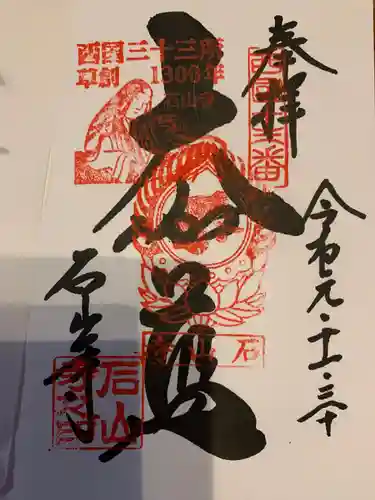 奉拝
西国十三番
令和元・十一・三十
大伽藍
西国三十三所
草創 1300年
石山寺
石山寺
石山寺
石山